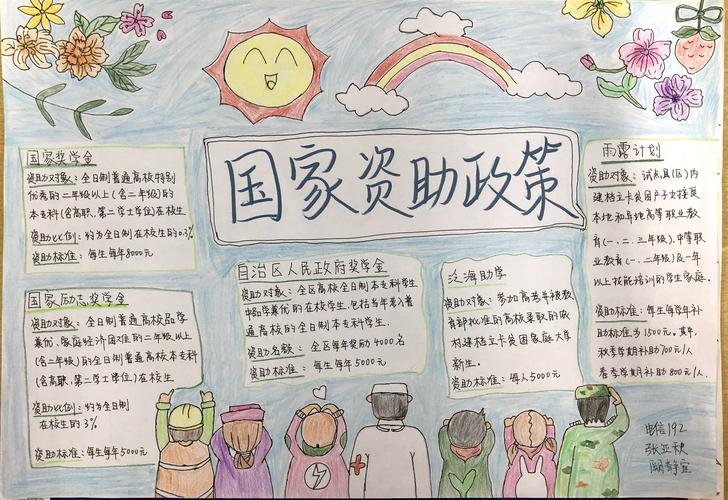 国家资助政策
国家奖学金
资助对象：全日制普通高校特别
优秀的二年级以上(含二年级)的
本专科(含高职、第二学士学位)在校生
资助比例：约为全日制在校生的0.3%
资助标准：每生每年8000元
国家励志奖学金
资助对象：全日制普通高校品学
兼优、家庭经济困难的二年级以上
(含二年级)的全日制普通高校本专科
(含高职、第二学士学位)在校生
资助比例：约为全日制
在校生的3%
资助标准：每生每年5000元
自治区人民政府奖学金
资助对象：全区高校全日制本专科学生
中品学兼优的在校学生，包括当年考入普
通高校的全日制本专科学生。
资助名额：全区每年奖励4000名
资助标准：每生每年5000元
泛海助学
资助对象：参加高考并被教
育部批准的高校录取的农
村建档立卡贫困家庭大学
新生。
资助标准：每人5000元
雨露计划
资助对象：试点县(区)内
建档立卡贫困户子女接受
本地和异地高等职业教
育(一、二、三年级)、中等职
业教育(一、二年级)及一年
以上技能培训的学生家庭。
资助标准：每生每学年补
助标准为1500元。其中，
秋季学期补助700元/人
春季学期补助800元/人.
电信192
张亚秋